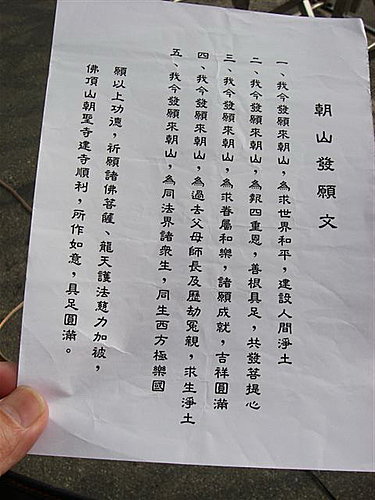 朝山發願文
一、我今發願來朝山，為求世界和平，建設人間淨土
二、我今發願來朝山，為報四重恩，善根具足，共發菩提心
三、我今發願來朝山，為求眷屬和樂，諸願成就，吉祥圓滿
四、我今發願來朝山，為過去父母師長及歷劫冤親，求生淨土
五、我今發願來朝山，為同法界諸衆生，同生西方極樂國
願以上功德，祈願諸佛菩薩、龍天護法慈力加被，
佛頂山朝聖寺建寺順利，所作如意，具足圓滿。